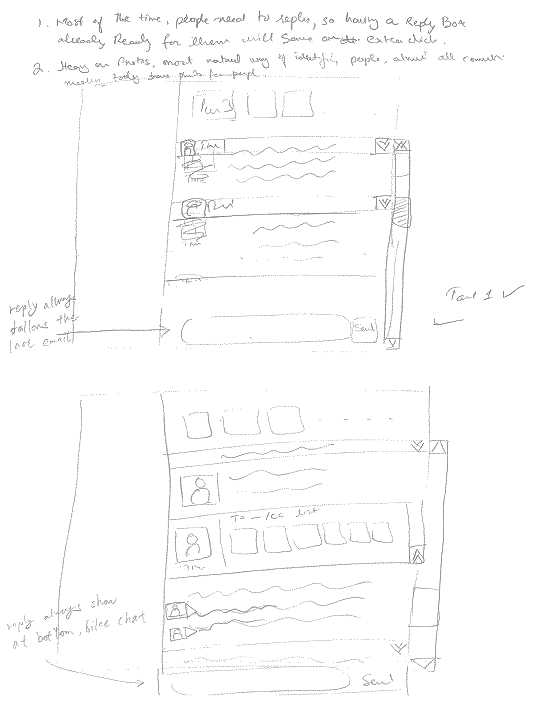 1. Most of the time, people need to reply, so having a Reply Box
already Ready for them will Save extra click.
2. Heavy on Photos, most natural way of identifying people, almost all
today have photo for people
Time
reply always
follows the
last email
Send
To - /cc list
Time
reply always show
at bottom, like chat
Send